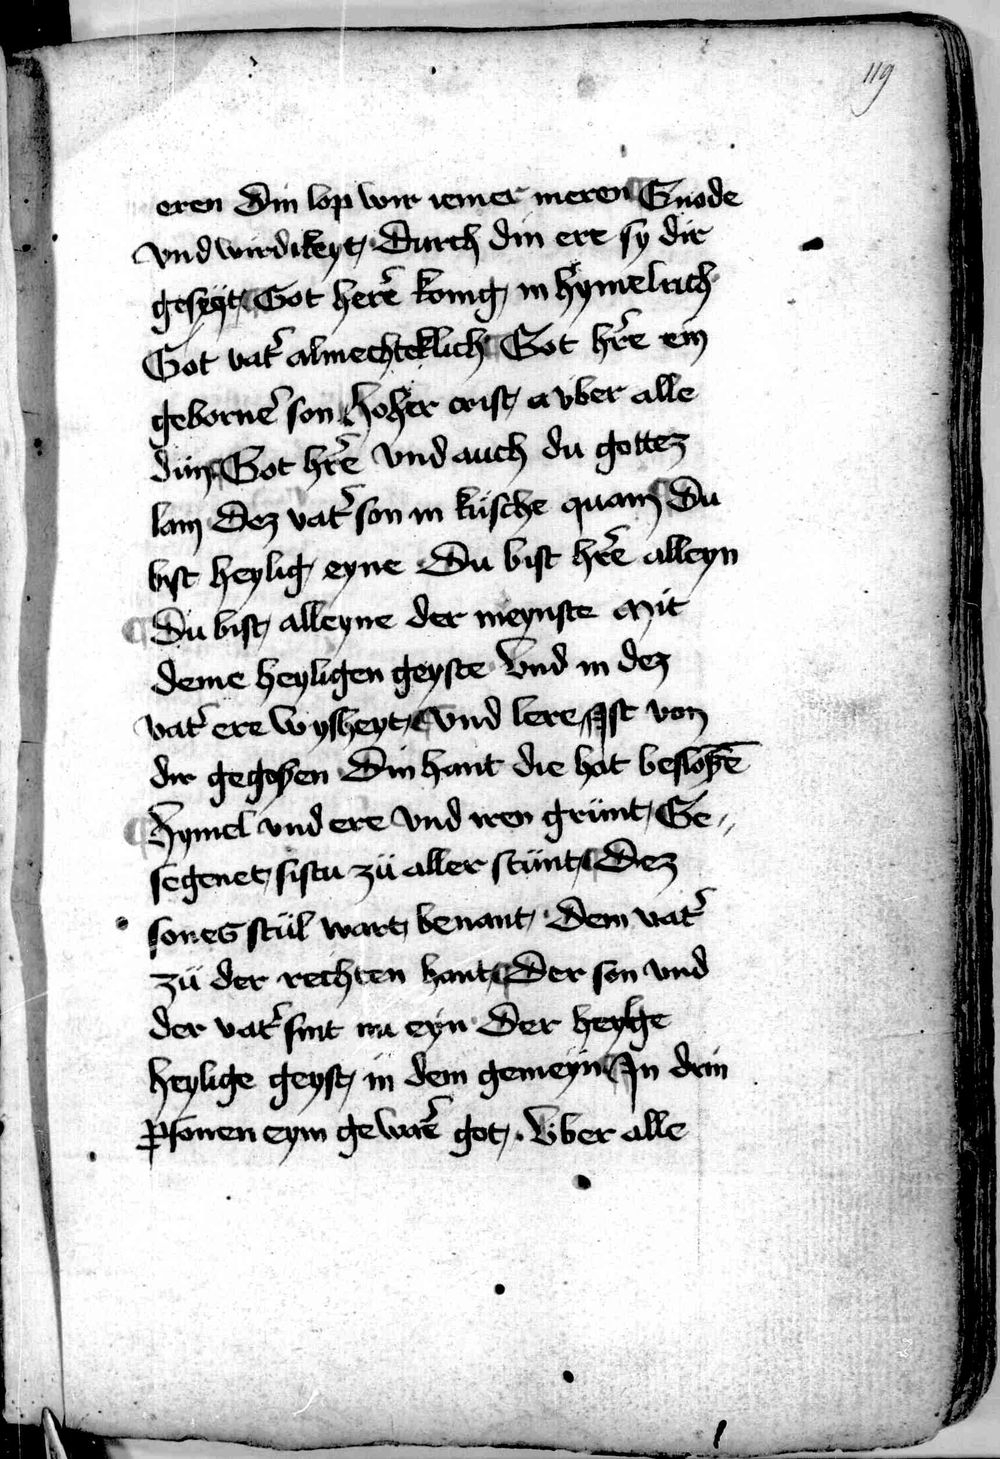 119
eren Din lop wir iemer meren Gnode
vnd wirdikeyt Durch din ere sy dir
geseyt Got her̄e konig in hymelrich
Got vat̛ almechteklich Got hr̄e ein
geborner̄ son hoher crist a vber alle
din Got hr̄e vnd auch du gottez
lam Dez vat̛ son in küsche quam Du
bist heylig eyne Du bist hr̄e alleyn
Du bist alleyne der meynste Mit
deme heyligen geyste Vnd in dez
vat̛ ere wysheyt vnd lere Ist von
dir gegosen Din hant die hat besloßē
Hymel vnd ere vnd iren grünt Ge
segenet sistu zü aller stünt Dez
sones stül wart benant Dem vat̛
zü der rechten hant Der son vnd
der vat̛ sint nu eyn Der heylge
heylige geyst in dem gemeyn In drin
ꝑsonen eym gewar̄e got Vber alle